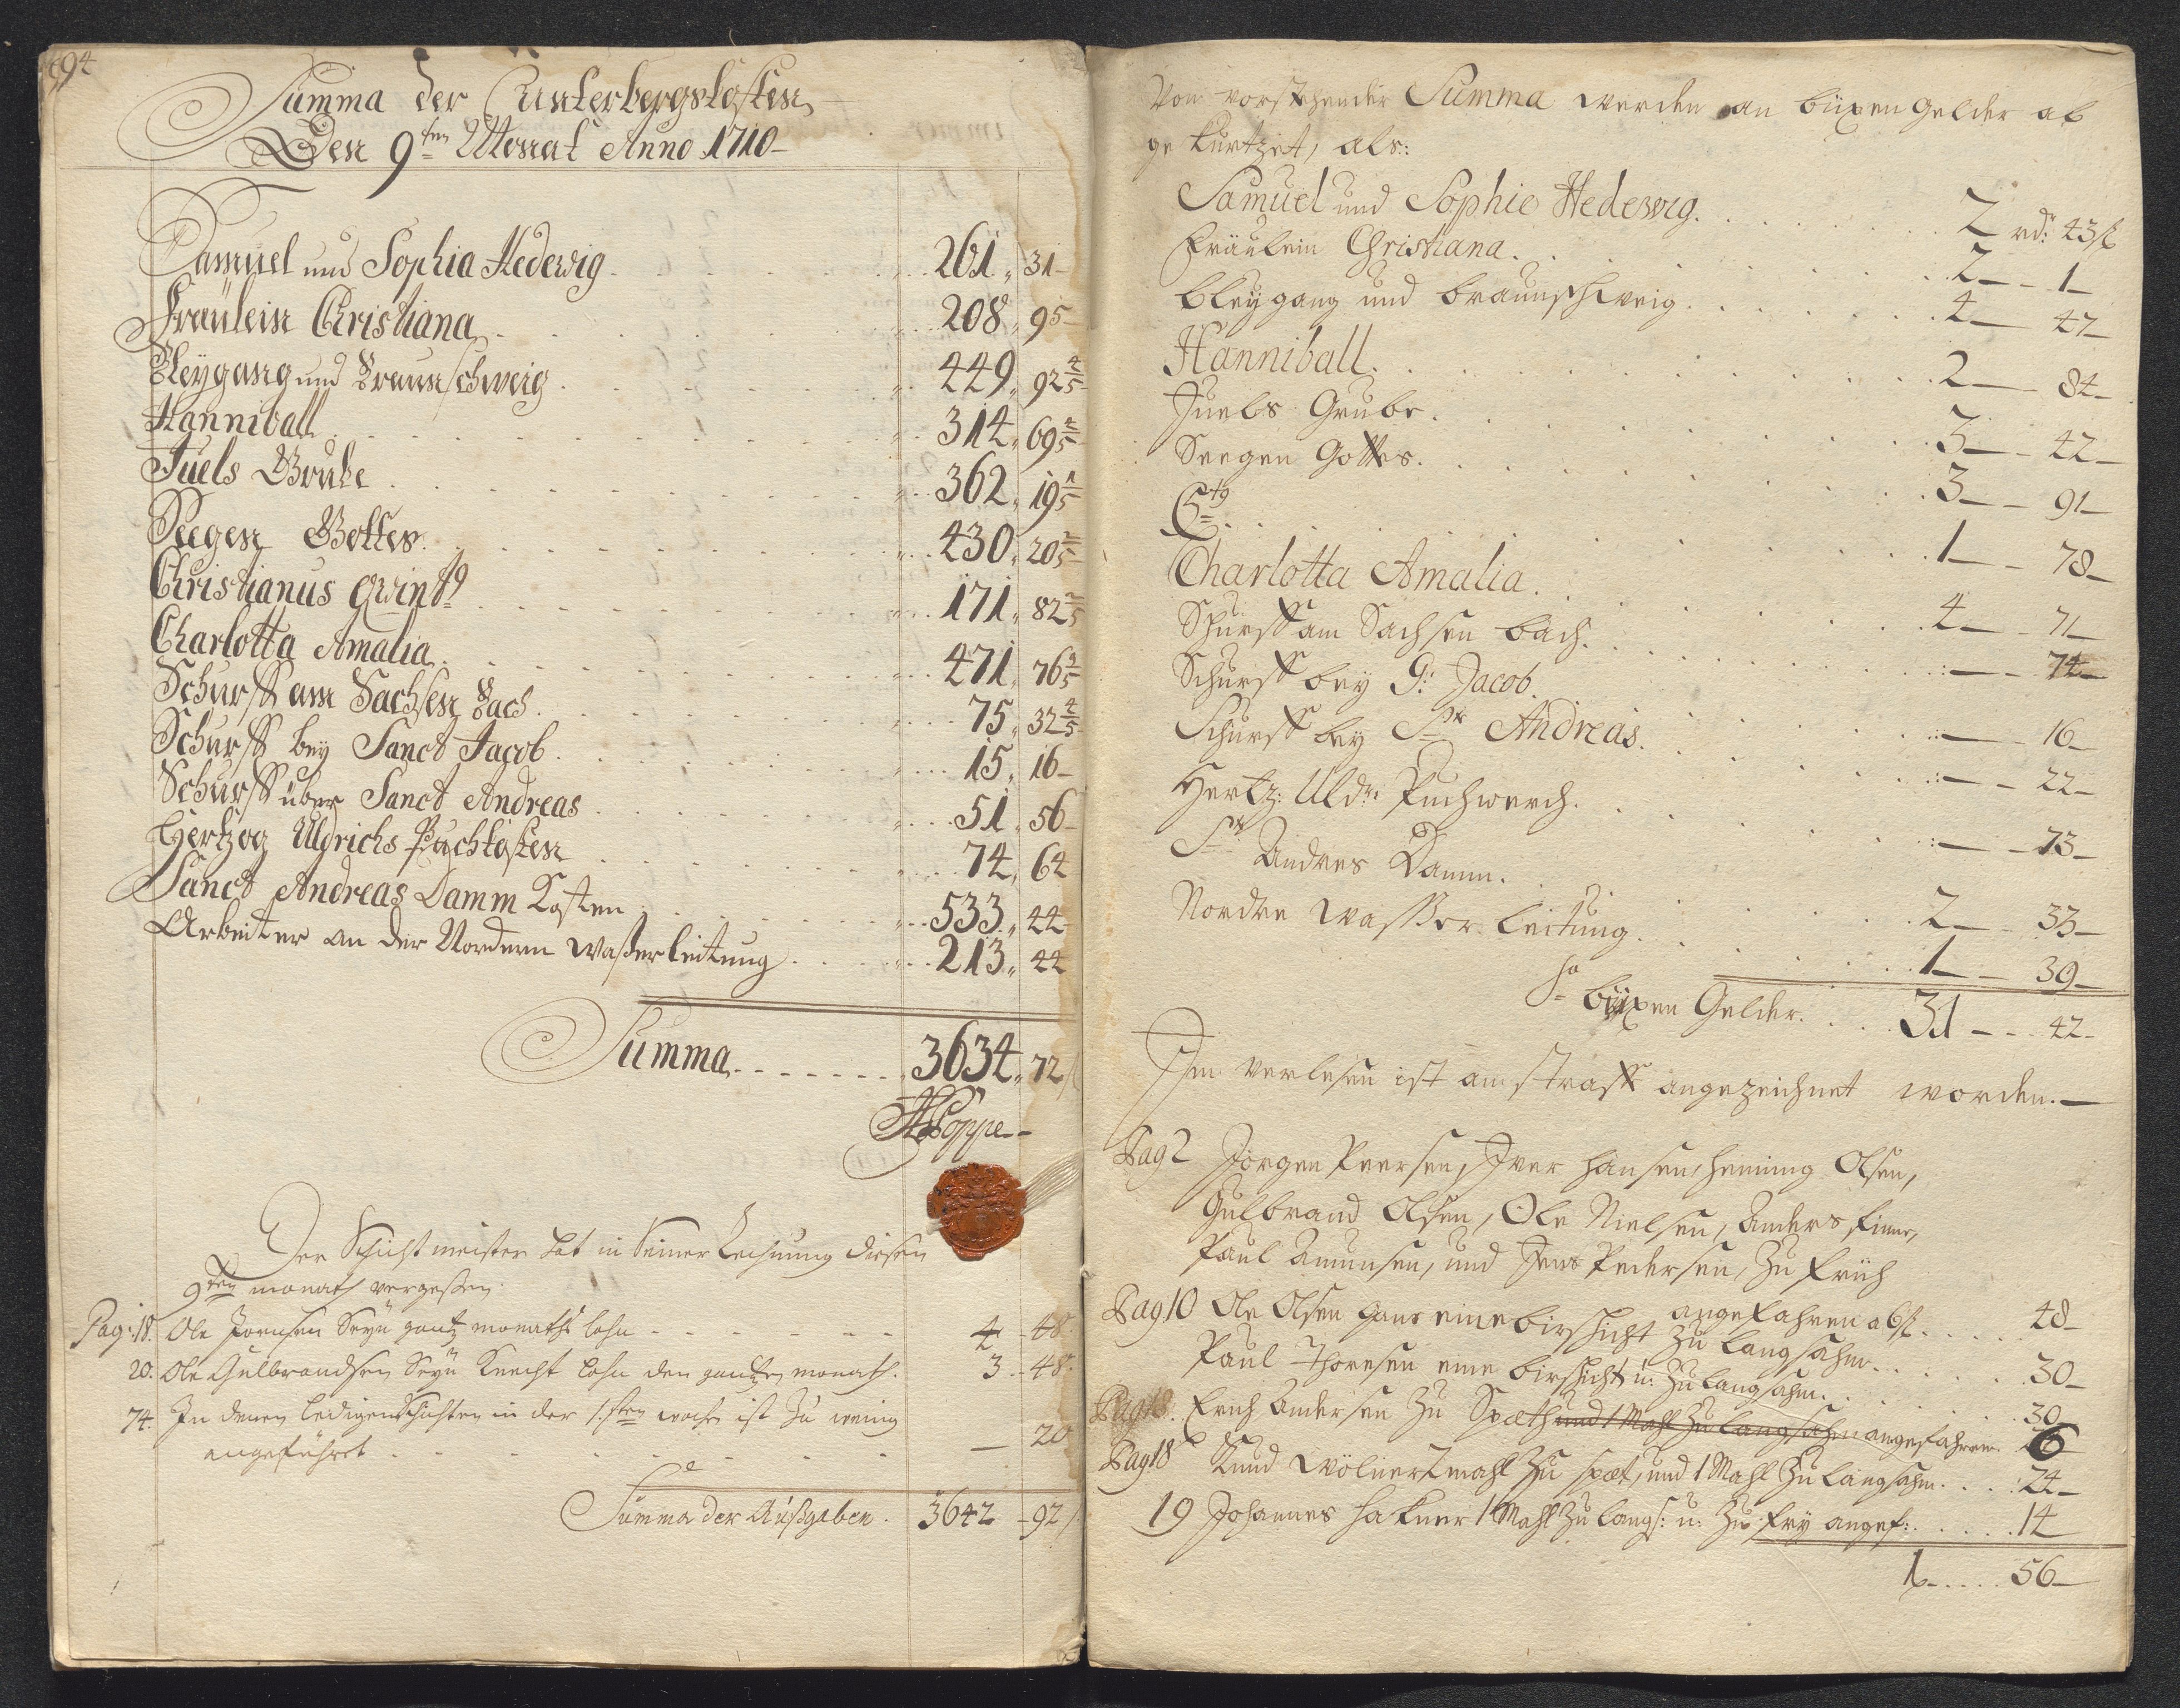 94
Summa der Unterbergskosten
Den 9ten Monat Anno 1710
Samuel und Sophia Hedewig 261 31
Fräulein Christiana 208 95
Bleygang und Braunschweig 449 92 4/5
Hanniball 314 69 2/5
Juels Grube 362 19 1/5
Seegen Gottes 430 20 2/5
Christianus Qvint9 171 82 2/5
Charlotta Amalia 471 76 3/5
Schurff am Sachsen Bach 75 32 4/5
Schurff bey Sanct Jacob 15 16
Schurff über Sanct Andreas 51 56
Hertzog Uldrichs Puchkosten 74 64
Sanct Andreas Damm Kosten 533 44
Arbeiter an der Nordern Waßerleitung 213 44
Summa 3634 72
Der Schichtmeister hat in Seiner Rechnung diesen
9ten monath vergeßen
Pag: 18. Ole Joensen Seyn gantz monaths lohn 4 48
20. Ole Gulbrandsen Seyn Knecht lohn den gantzen monath. 3 48
74. In denen ledigen Schichten in der 1sten woche ist zu wenig
angeführet 20
Summa der Außgaben 3642 92
Von vorstehender Summa werden an büxen gelder ab
gekurtzet, als:
Samuel und Sophie Hedewig 2 rd: 43 ß
Fräulein Christiana 2 1
Bleygang und Braunschweig 4 47
Hanniball 2 84
Juels Grube 3 42
Seegen Gottes 3 91
C 5t9 1 78
Charlotta Amalia 4 71
Schurff am Sachsen bach 74
Schurff bey S: Jacob 16
Schurff bey St: Andreas 22
Hertz: Uldr: Puchwerck 73
St: Andres Damm 2 33
Nordre Wasser Leitung 1 39
Sa büxen Gelder 31 42
Im verlesen ist an straff angezeichnet worden.
Pag 2 Jörgen Peersen, Iver Hansen, Henning Olsen,
Gulbrand Olsen, Ole Nielsen, Anders Finne,
Paul Amunsen, und Jens Pedersen, zu früh
angefahren a 6 ß 48
Pag 10 Ole Olsen Gans eine birschicht zu langsahm 30
Paul Thoresen eine birschicht u: zu langsahm 30
Pag 18. Erich Andersen zu Späth und 1 Mahl zu langsahm angefahren 6
Pag 18 Knud Wölner 1 mahl zu spät, und 1 Mahl zu langsahm 24
19 Johannes Hakner 1 Mahl zu langs: u: zu fry angef: 14
1 56